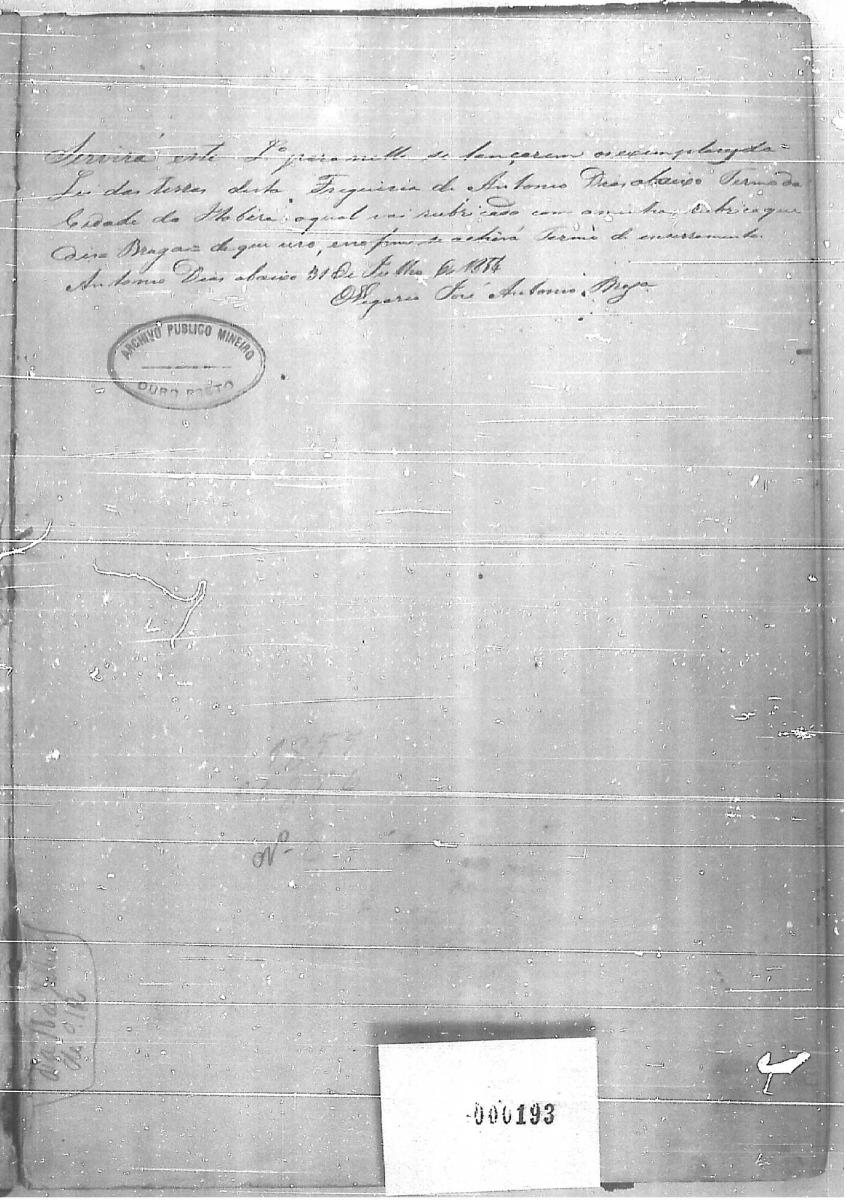 Servirá este L.º para nelle se lançarem os exemplares da =
Lei das terras desta Freguisia de Antonio Dias abaixo Termo da
Cidade da Itabira: o qual vai rubricado com a minha rubrica que
diz = Braga = de que uso, e no fim se achará Termo de encerramento.
Antonio Dias abaixo 31 de Julho de
Olegario José Antonio Braga
ARCHIVO PUBLICO MINEIRO
OURO PRETO
1855
Nº
000193